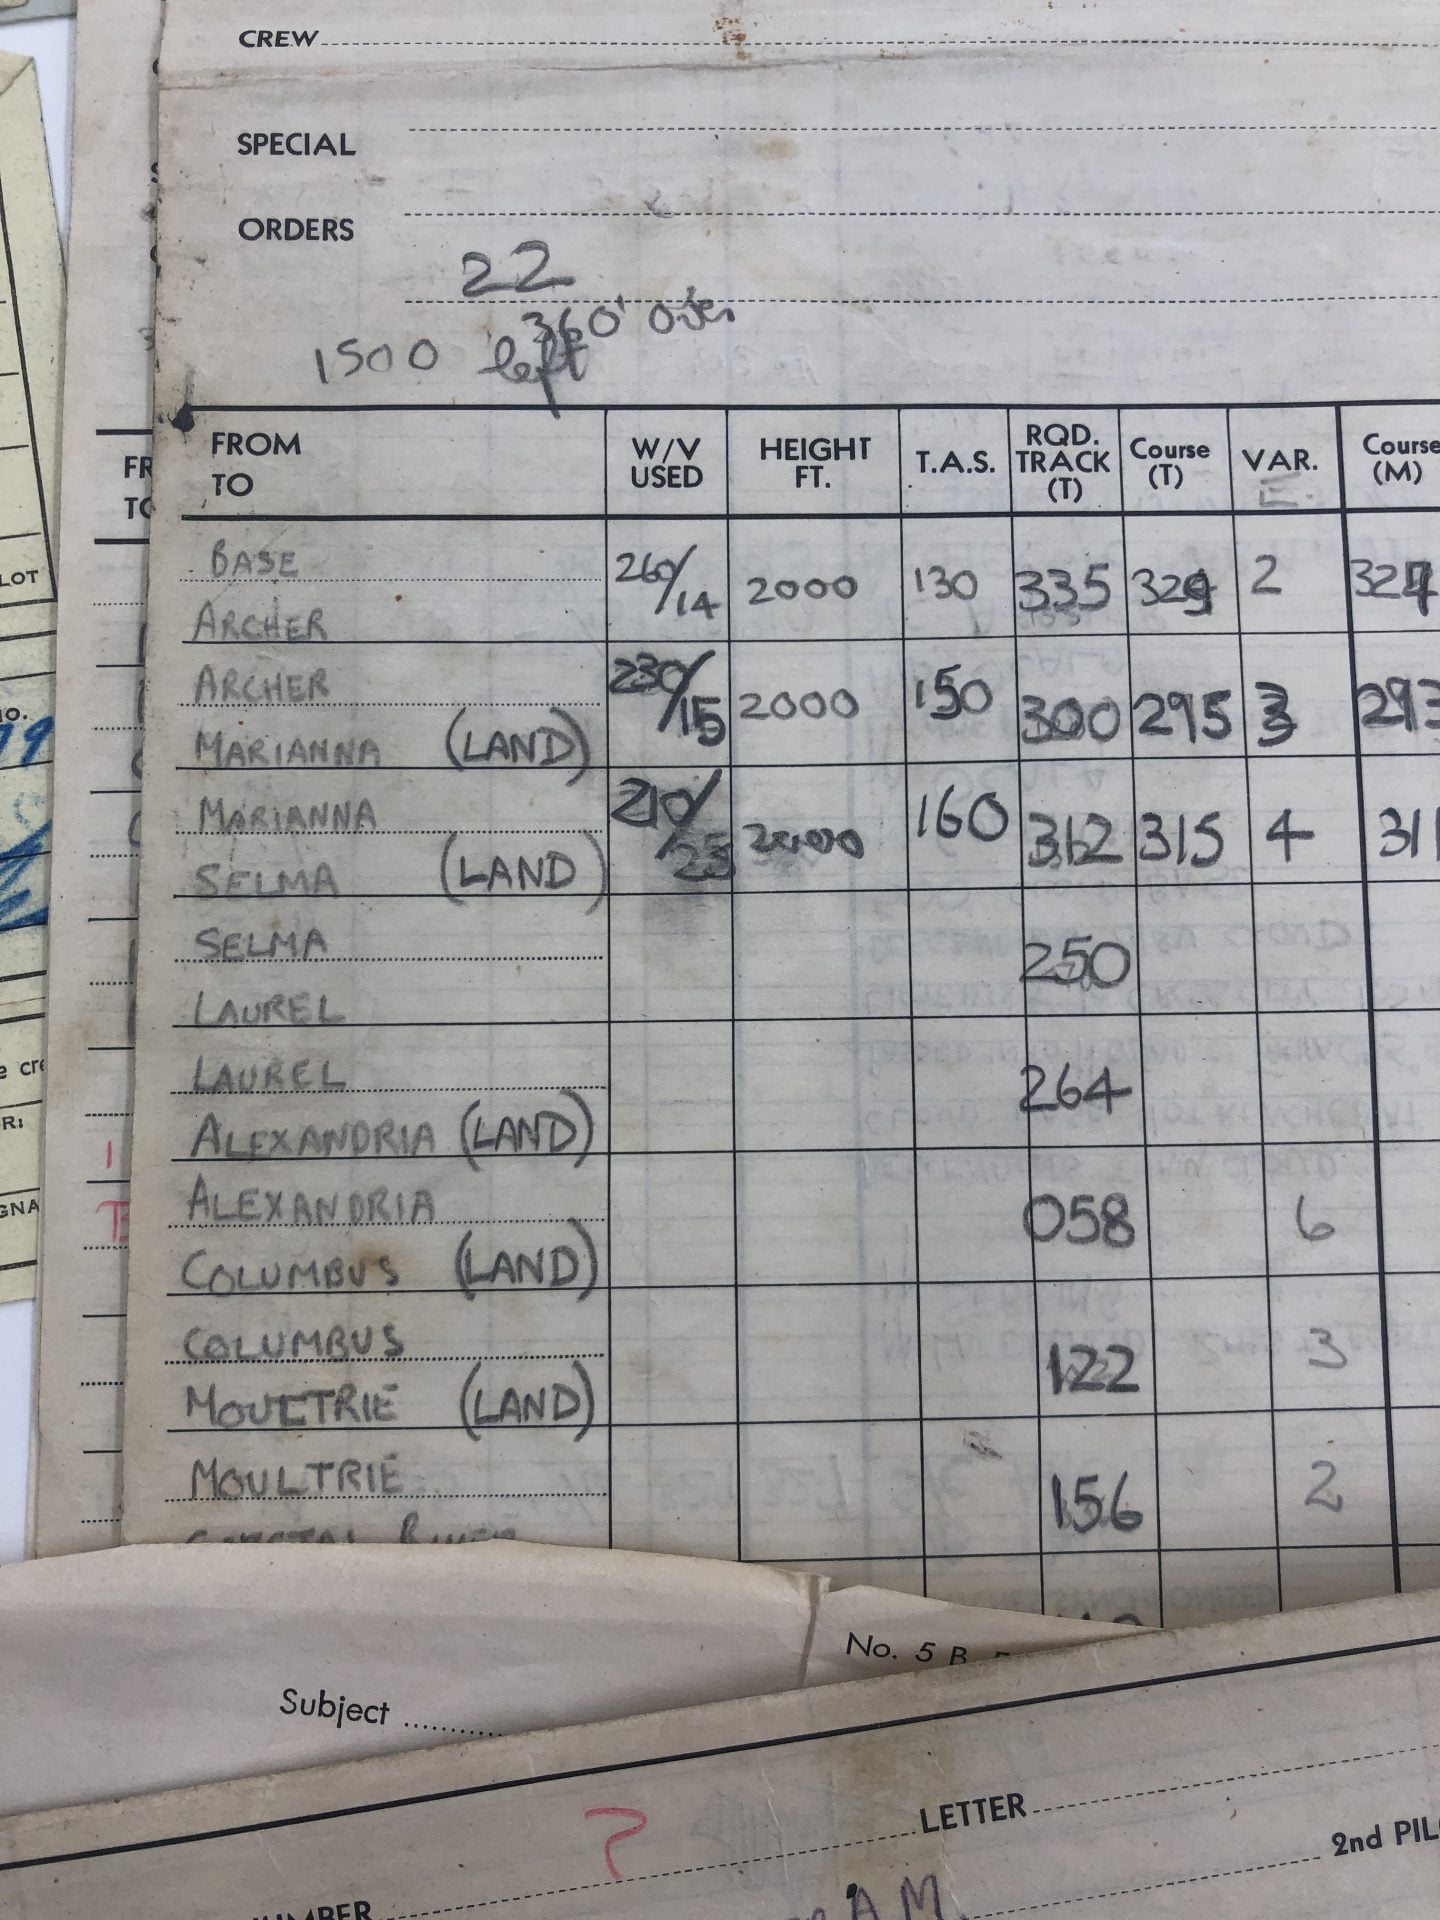 CREW
SPECIAL
ORDERS
22
360° over
1500 left
FROM TO W/V USED HEIGHT FT. T.A.S. RQD. TRACK (T) Course (T) VAR. E. Course (M)
BASE
ARCHER 260/14 2000 130 335 329 2 327
ARCHER
MARIANNA (LAND) 230/15 2000 150 300 295 3 293
MARIANNA
SELMA (LAND) 210/25 2000 160 312 315 4 311
SELMA
LAUREL 250
LAUREL
ALEXANDRIA (LAND) 264
ALEXANDRIA
COLUMBUS (LAND) 058 6
COLUMBUS
MOULTRIE (LAND) 122 3
MOULTRIE 156 2
LOT
No. 5 B
Subject
LETTER
?
2nd PIL
A.M.